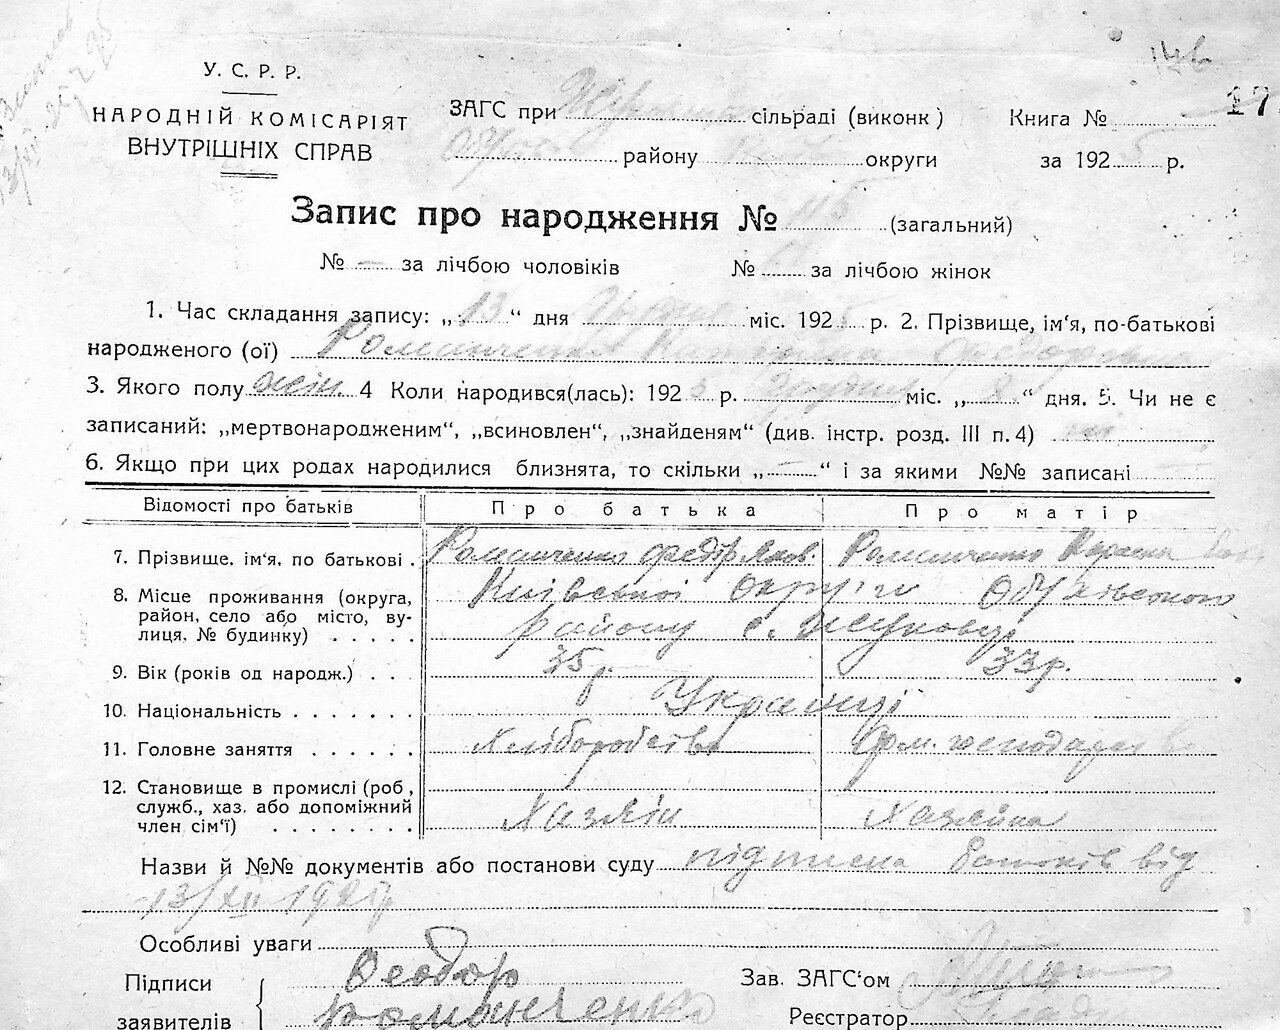 У. С. Р. Р.
НАРОДНІЙ КОМІСАРІЯТ
ВНУТРІШНІХ СПРАВ
ЗАГС при сільраді (виконк)
Книга №
17
району округи
за 1925 р.
Запис про народження № 115 (загальний)
№ — за лічбою чоловіків № за лічбою жінок
1. Час складання запису: „13“ дня Грудня міс. 1925 р. 2. Прізвище, ім‘я, по-батькові
народженого (ої) Романченко Федоровна
3. Якого полу жін. 4 Коли народився(лась): 1925 р. Грудня міс. „ “ дня. 5. Чи не є
записаний: „мертвонародженим“, „всиновлен“, „знайденям“ (див. інстр. розд. III п. 4) ні
6. Якщо при цих родах народилися близнята, то скільки „—“ і за якими №№ записані —
Відомості про батьків Про батька Про матір
7. Прізвище, ім‘я, по батькові . Романченко Федір Яков. Романченко
8. Місце проживання (округа, Київської округи Обухівського
район, село або місто, ву- району с.
лиця, № будинку) . . . . .
9. Вік (років од народж.) . . . 35 р. 33 р.
10. Національність . . . . . . . Українці
11. Головне заняття . . . . . . Хліборобство господарство
12. Становище в промислі (роб.,
служб., хаз. або допоміжний
член сім‘ї) . . . . . . . . Хазяїн Хазяйка
Назви й №№ документів або постанови суду підписка батьків від
13/XII 1925 р
Особливі уваги
Підписи Феодор Зав. ЗАГС‘ом
заявителів Романченко Реєстратор